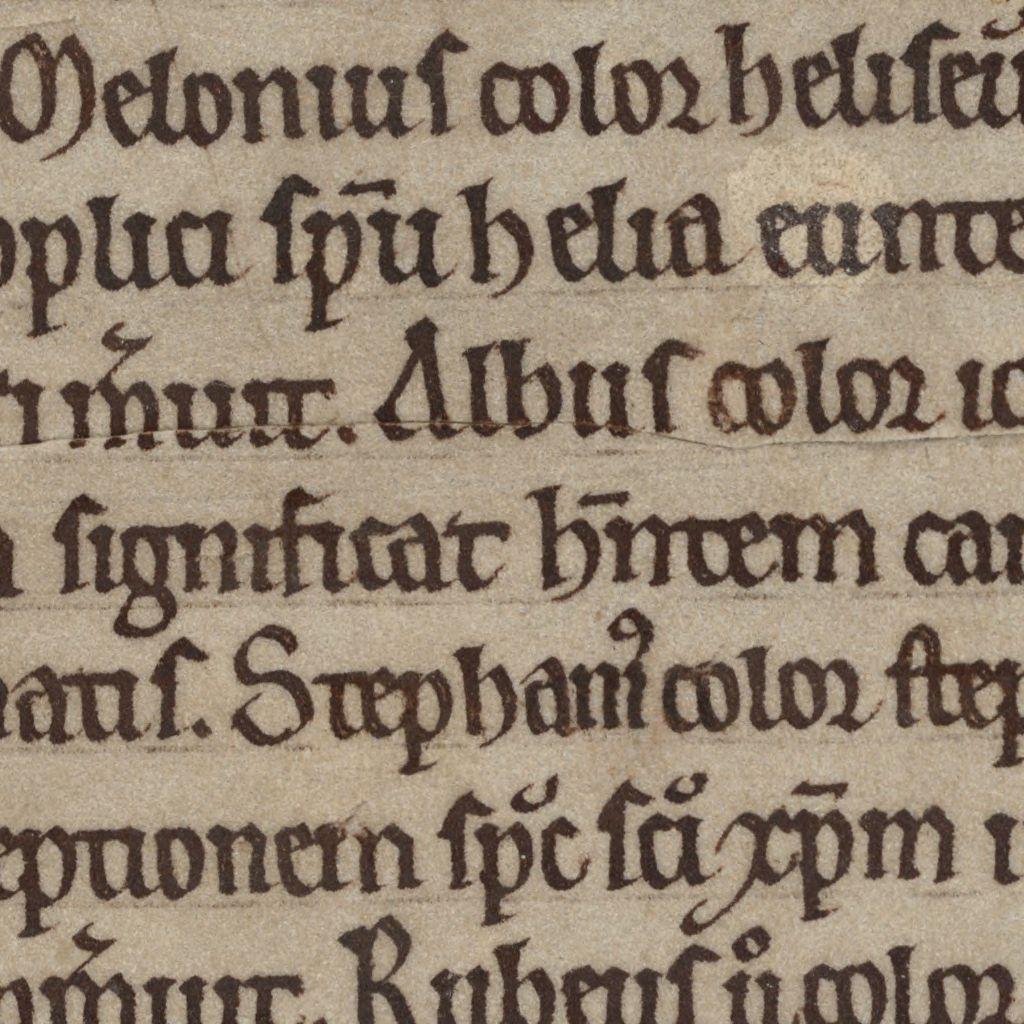 Melonius color heliseū
pplici sp̄u helia eunte
ti m̄uit. Albus color ic
a significat h̄ntem car
natis. Stephani᾽ color step
eptionem sp̄c sc̄i xp̄m i
m̄uit. Rubeus ů color